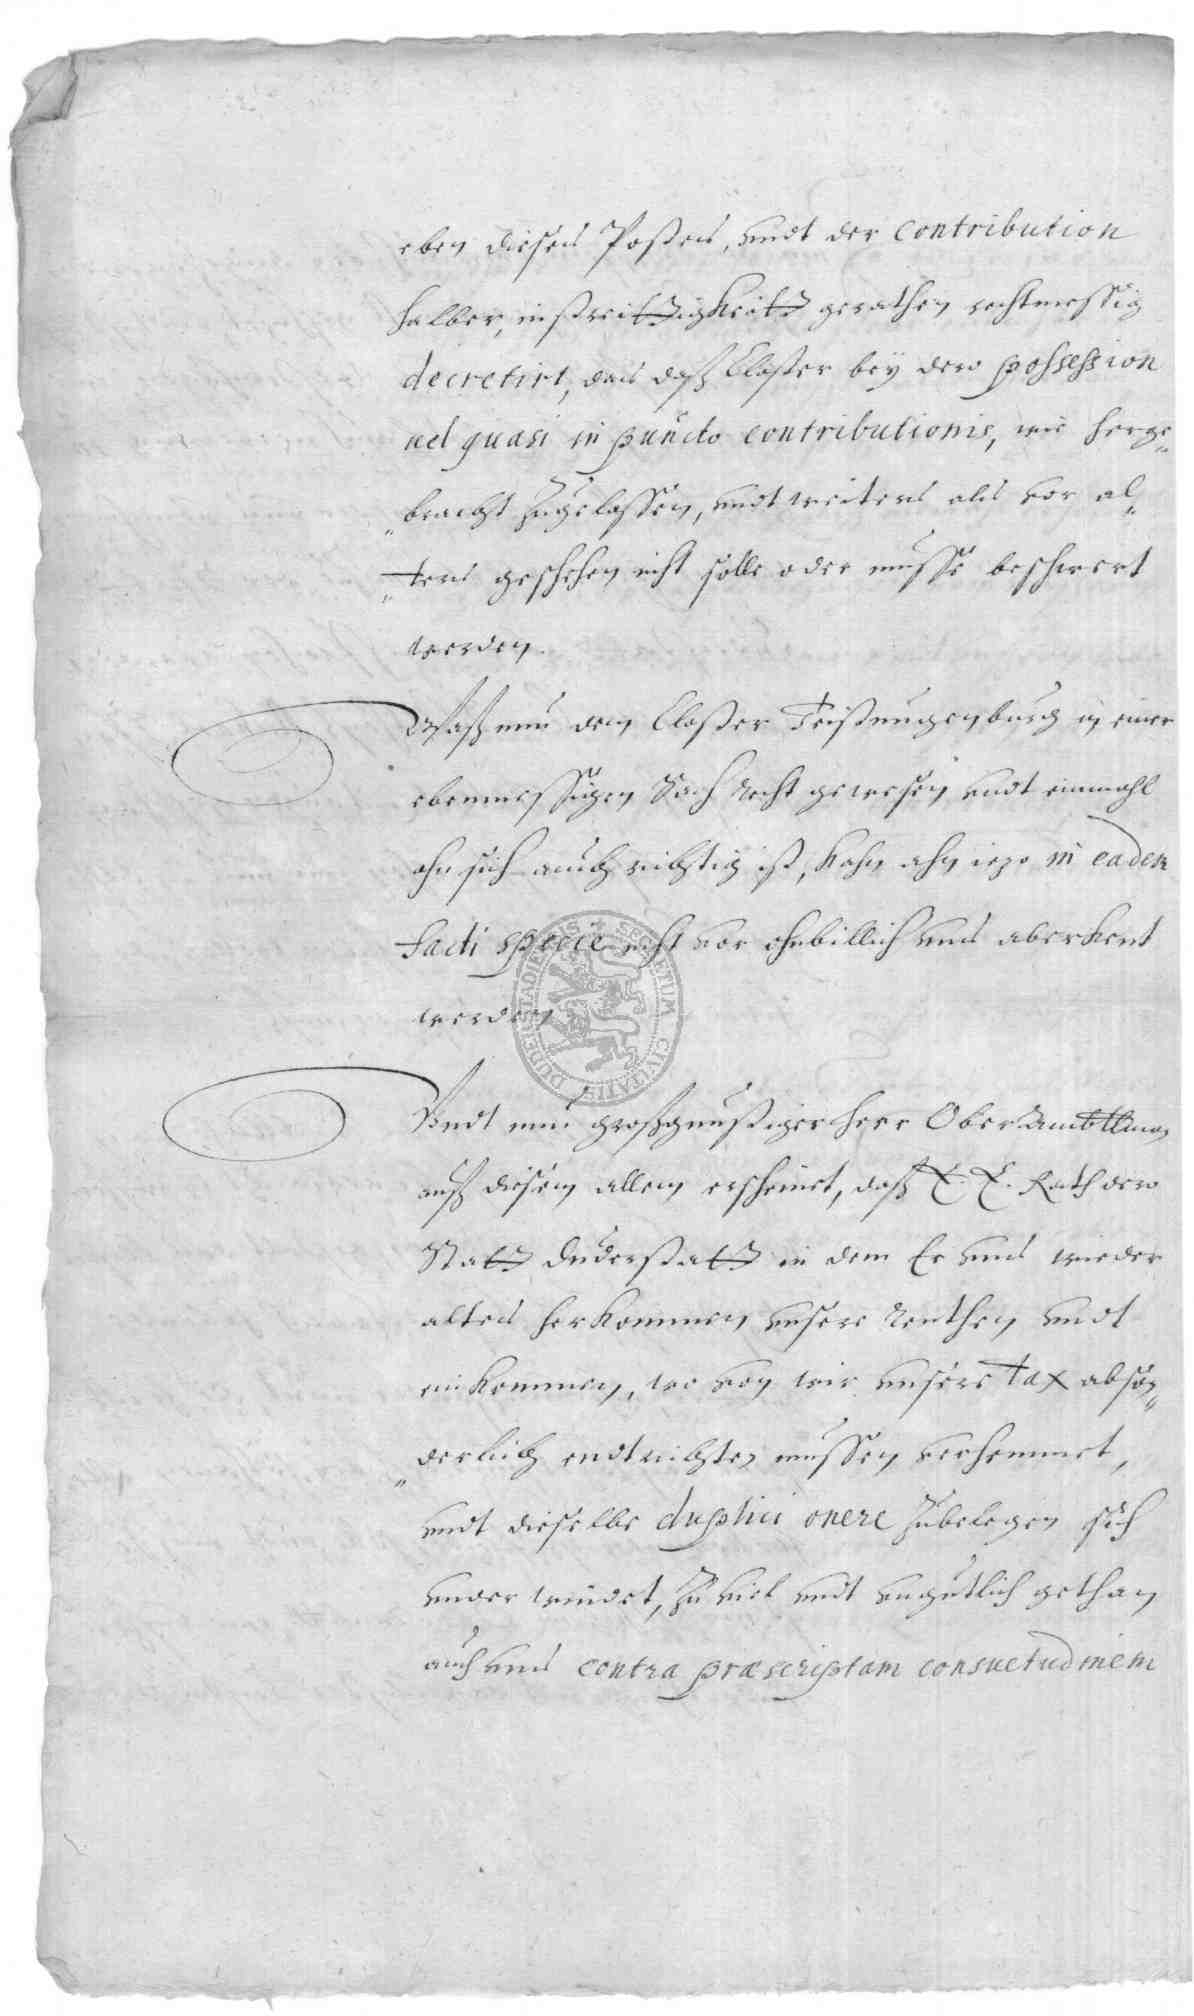 eben dieses Postens, undt der contribution
halber, in streittigkeitt gerathen rechtmessig
decretirt, das daß Closter bey dero possession
vel quasi in puncto contributionis, wie herge„
„bracht zugelassen, undt weiters als vor al„
„ters geschehen nicht solle oder müsse beschwert
werden.
Waß nun dem Closter Teistungenburg in einer
ebenmessigen Sach Recht gewesen undt einmahl
ahn sich auch richtig ist, kahn ahn iezo in eadem
facti specie nicht vor ohnbillich uns aberkent
werden
Undt nun großgünstiger Herr Ober Ambttman
auß diesem allem erscheinet, daß E. E. Rath dero
Statt Duderstatt in dem Er uns wieder
altes herkommen unsere Renthen undt
einkommen, wo von wir unsere tax abson„
„derlich endtrichten müssen verhemmet,
undt dieselbe duplici onere zubelegen sich
underwindet, zu viel undt ungütlich gethan
auch uns contra præscriptam consuetudinem
SECRETUM CIVITATIS DUDERSTADIENSIS